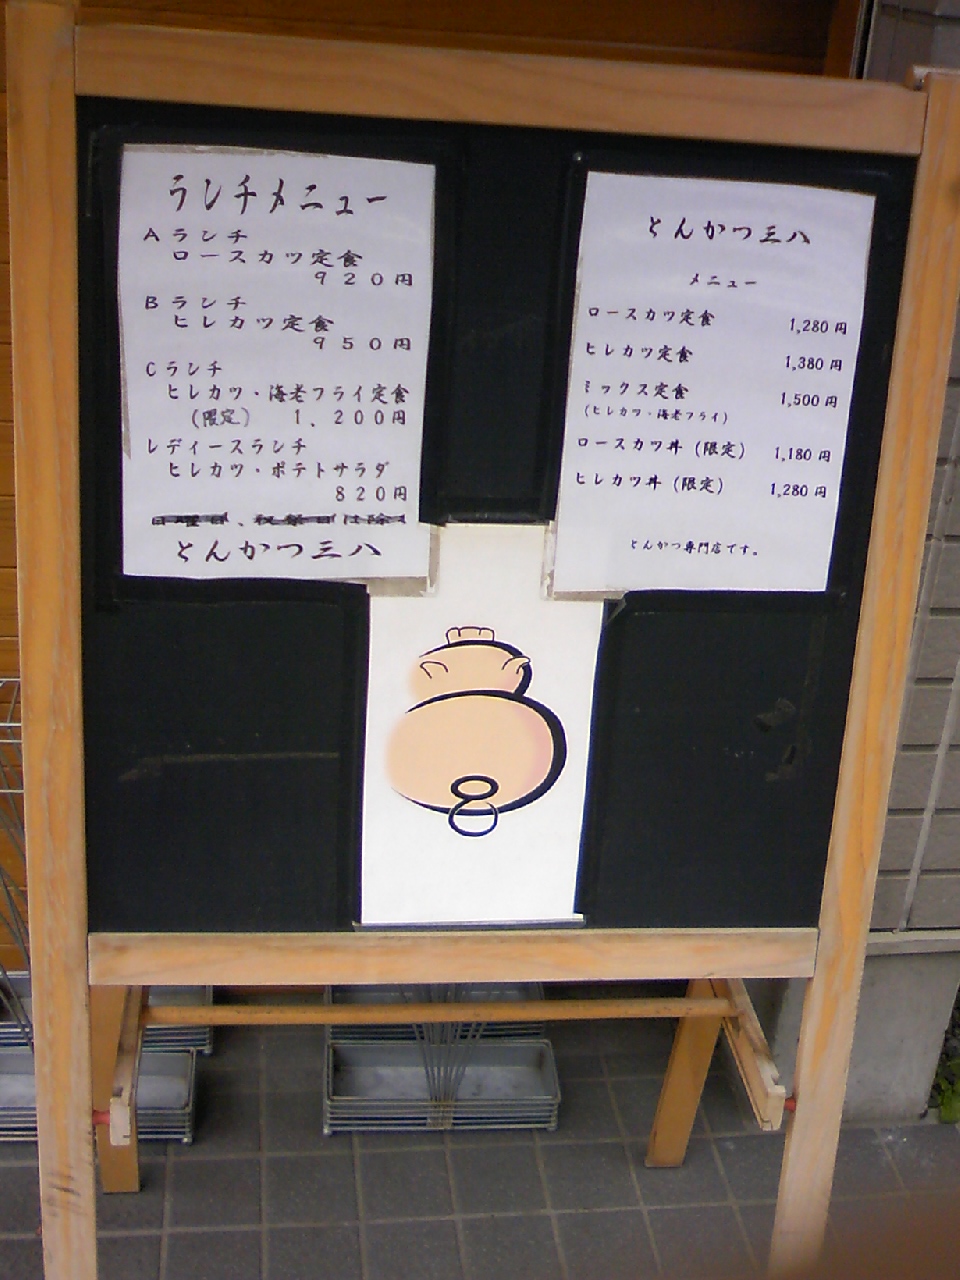 ランチメニュー
Aランチ
ロースカツ定食
920円
Bランチ
ヒレカツ定食
950円
Cランチ
ヒレカツ・海老フライ定食
(限定) 1,200円
レディースランチ
ヒレカツ・ポテトサラダ
820円
日曜日、祝祭日は除く
とんかつ三八
とんかつ三八
メニュー
ロースカツ定食 1,280円
ヒレカツ定食 1,380円
ミックス定食 1,500円
(ヒレカツ・海老フライ)
ロースカツ丼 (限定) 1,180円
ヒレカツ丼 (限定) 1,280円
とんかつ専門店です。